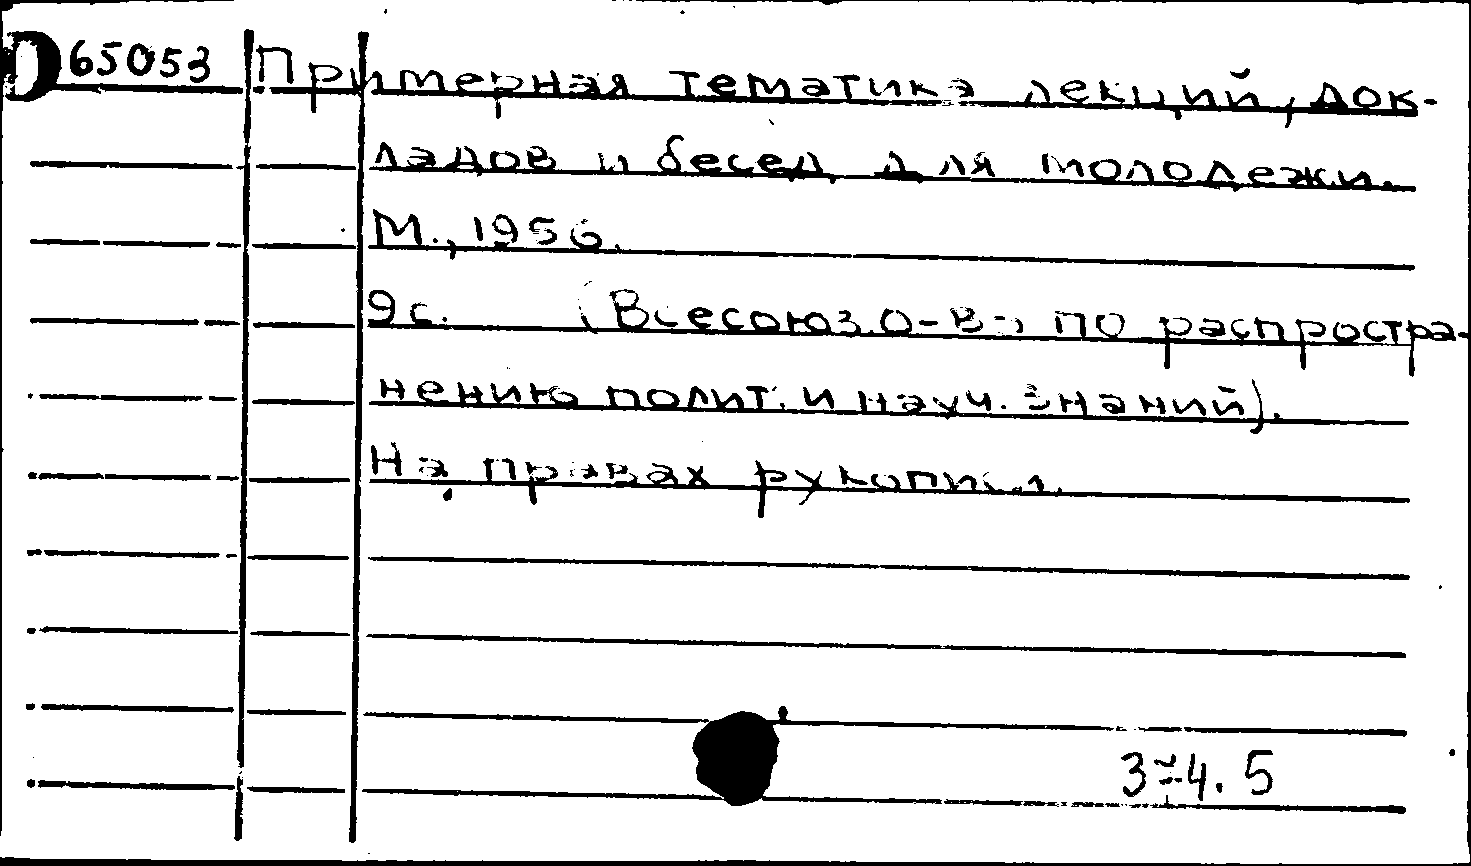 D 65053 Примерная тематика лекций, док-
ладов и бесед для молодежи.
М., 1956.
9 с. (Всесоюз. о-во по распростра-
нению полит. и науч. знаний).
На правах рукописи.